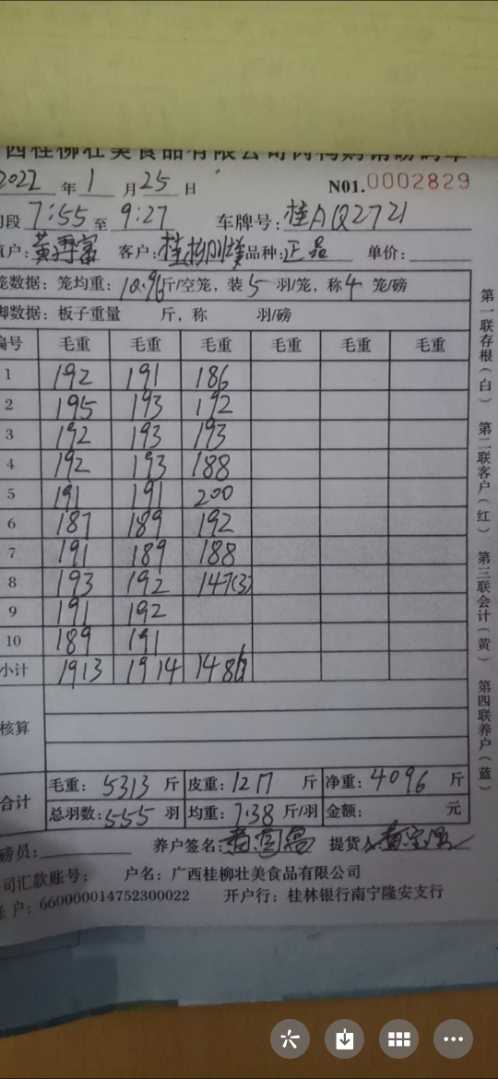 西桂柳壮美食品有限公司肉鸭购销磅码单
2022 年 1 月 25 日 N01.0002829
间段 7:55 至 9:27 车牌号: 桂AQ2721
直户: 客户: 品种: 正品 单价:
笼数据: 笼均重: 10.96 斤/空笼, 装 5 羽/笼, 称 4 笼/磅
脚数据: 板子重量 斤, 称 羽/磅
编号 毛重 毛重 毛重 毛重 毛重 毛重
1 192 191 186
2 195 193 192
3 192 193 193
4 192 193 188
5 191 191 200
6 187 189 192
7 191 189 188
8 193 192 147(3)
9 191 192
10 189 191
小计 1913 1914 1486
核算
合计 毛重: 5313 斤 皮重: 1217 斤 净重: 4096 斤
总羽数: 555 羽 均重: 7.38 斤/羽 金额: 元
磅员: 养户签名: 提货人
司汇款账号: 户名: 广西桂柳壮美食品有限公司
账 户: 660000014752300022 开户行: 桂林银行南宁隆安支行
第一联存根(白) 第二联客户(红) 第三联会计(黄) 第四联养户(蓝)